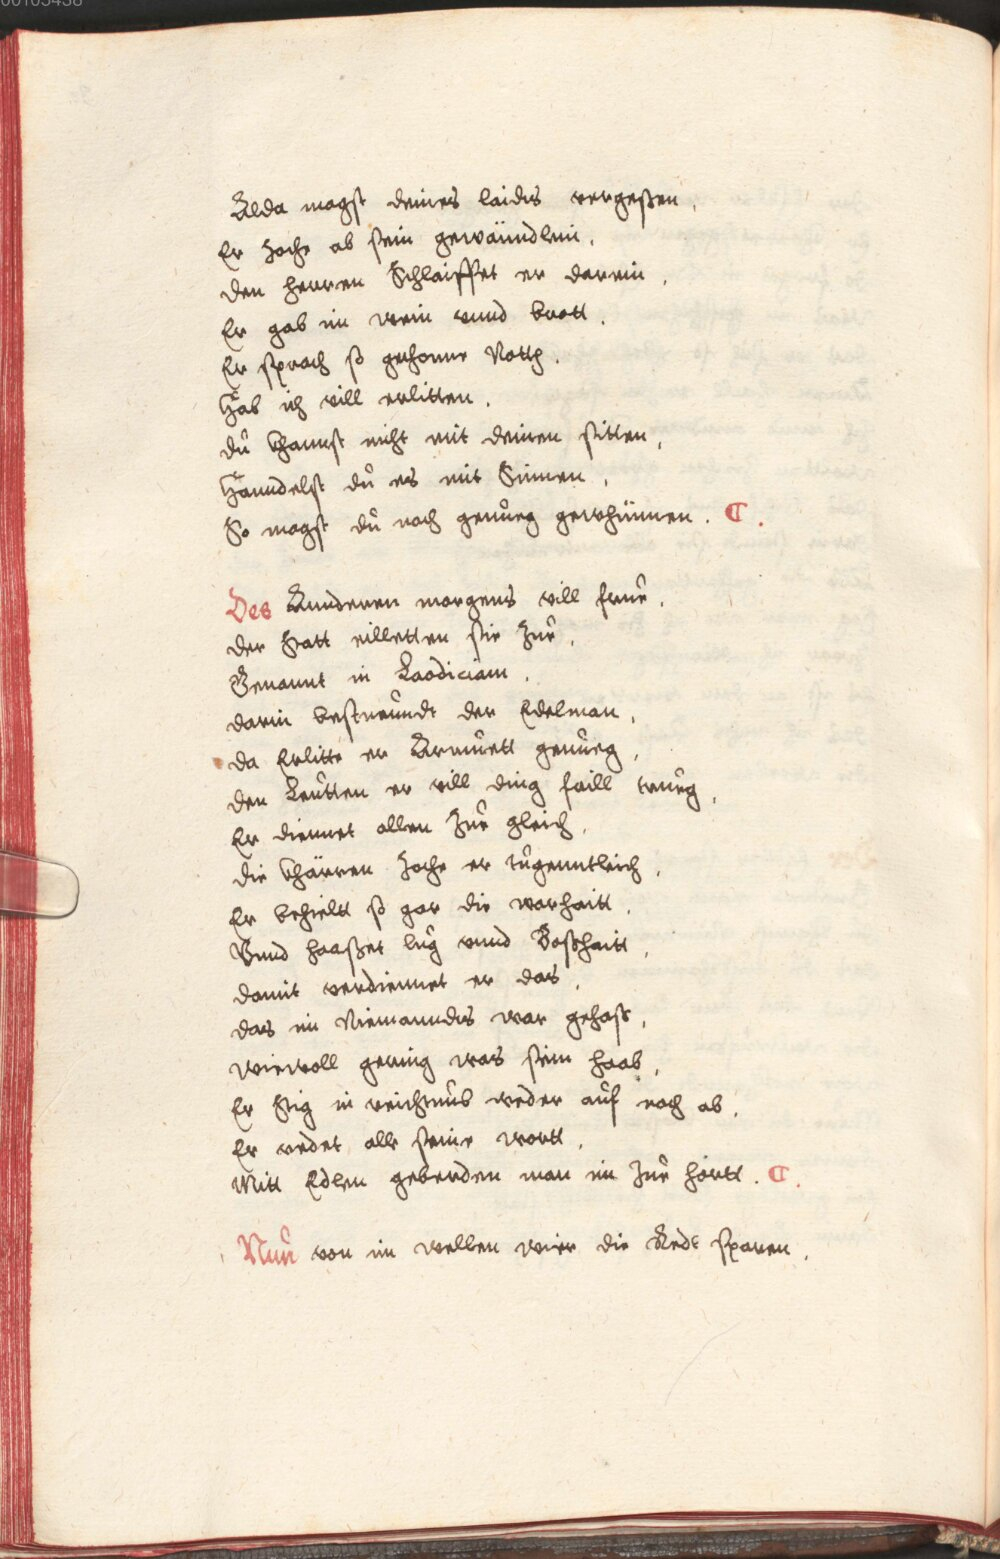 00105458
Allda magst deines laides vergeßen.
Er Zoche ab sein gewänndlein.
Den herren Schlaiffet er darein.
Er gab im wein vnnd brott.
Er sprach so gethonne Notth.
Hab ich vill erlitten.
dů khannst nicht mit deinen sitten.
Hanndelst dů es mit Sinnen.
So magst dů noch genůeg gewhünnen. ¶.
Des Annderen morgens vill frue.
der Statt eilletten sie Zůe.
Genannt in Laodiciam.
darin bestreundt der Edelman.
da Erlitte er Armůett genůeg.
den Leůtten er vill ding faill trůeg.
Er diennet allen Zůe gleich.
die khärren Zoche er tůgenntleich.
Er behieltt so gar die warhaitt.
Vnnd haaßet lůg vnnd Boßhaitt.
damit verdiennet er das.
das im Niemanndts war gehaß.
wiewoll gering was sein haab.
Er stig in reichtuůb weder aůf noch ab.
Er redet alle seine wortt.
Mitt Edlen geberden man im Zůe hörtt. ¶.
Nun von im wellen wier die Rede sparen.